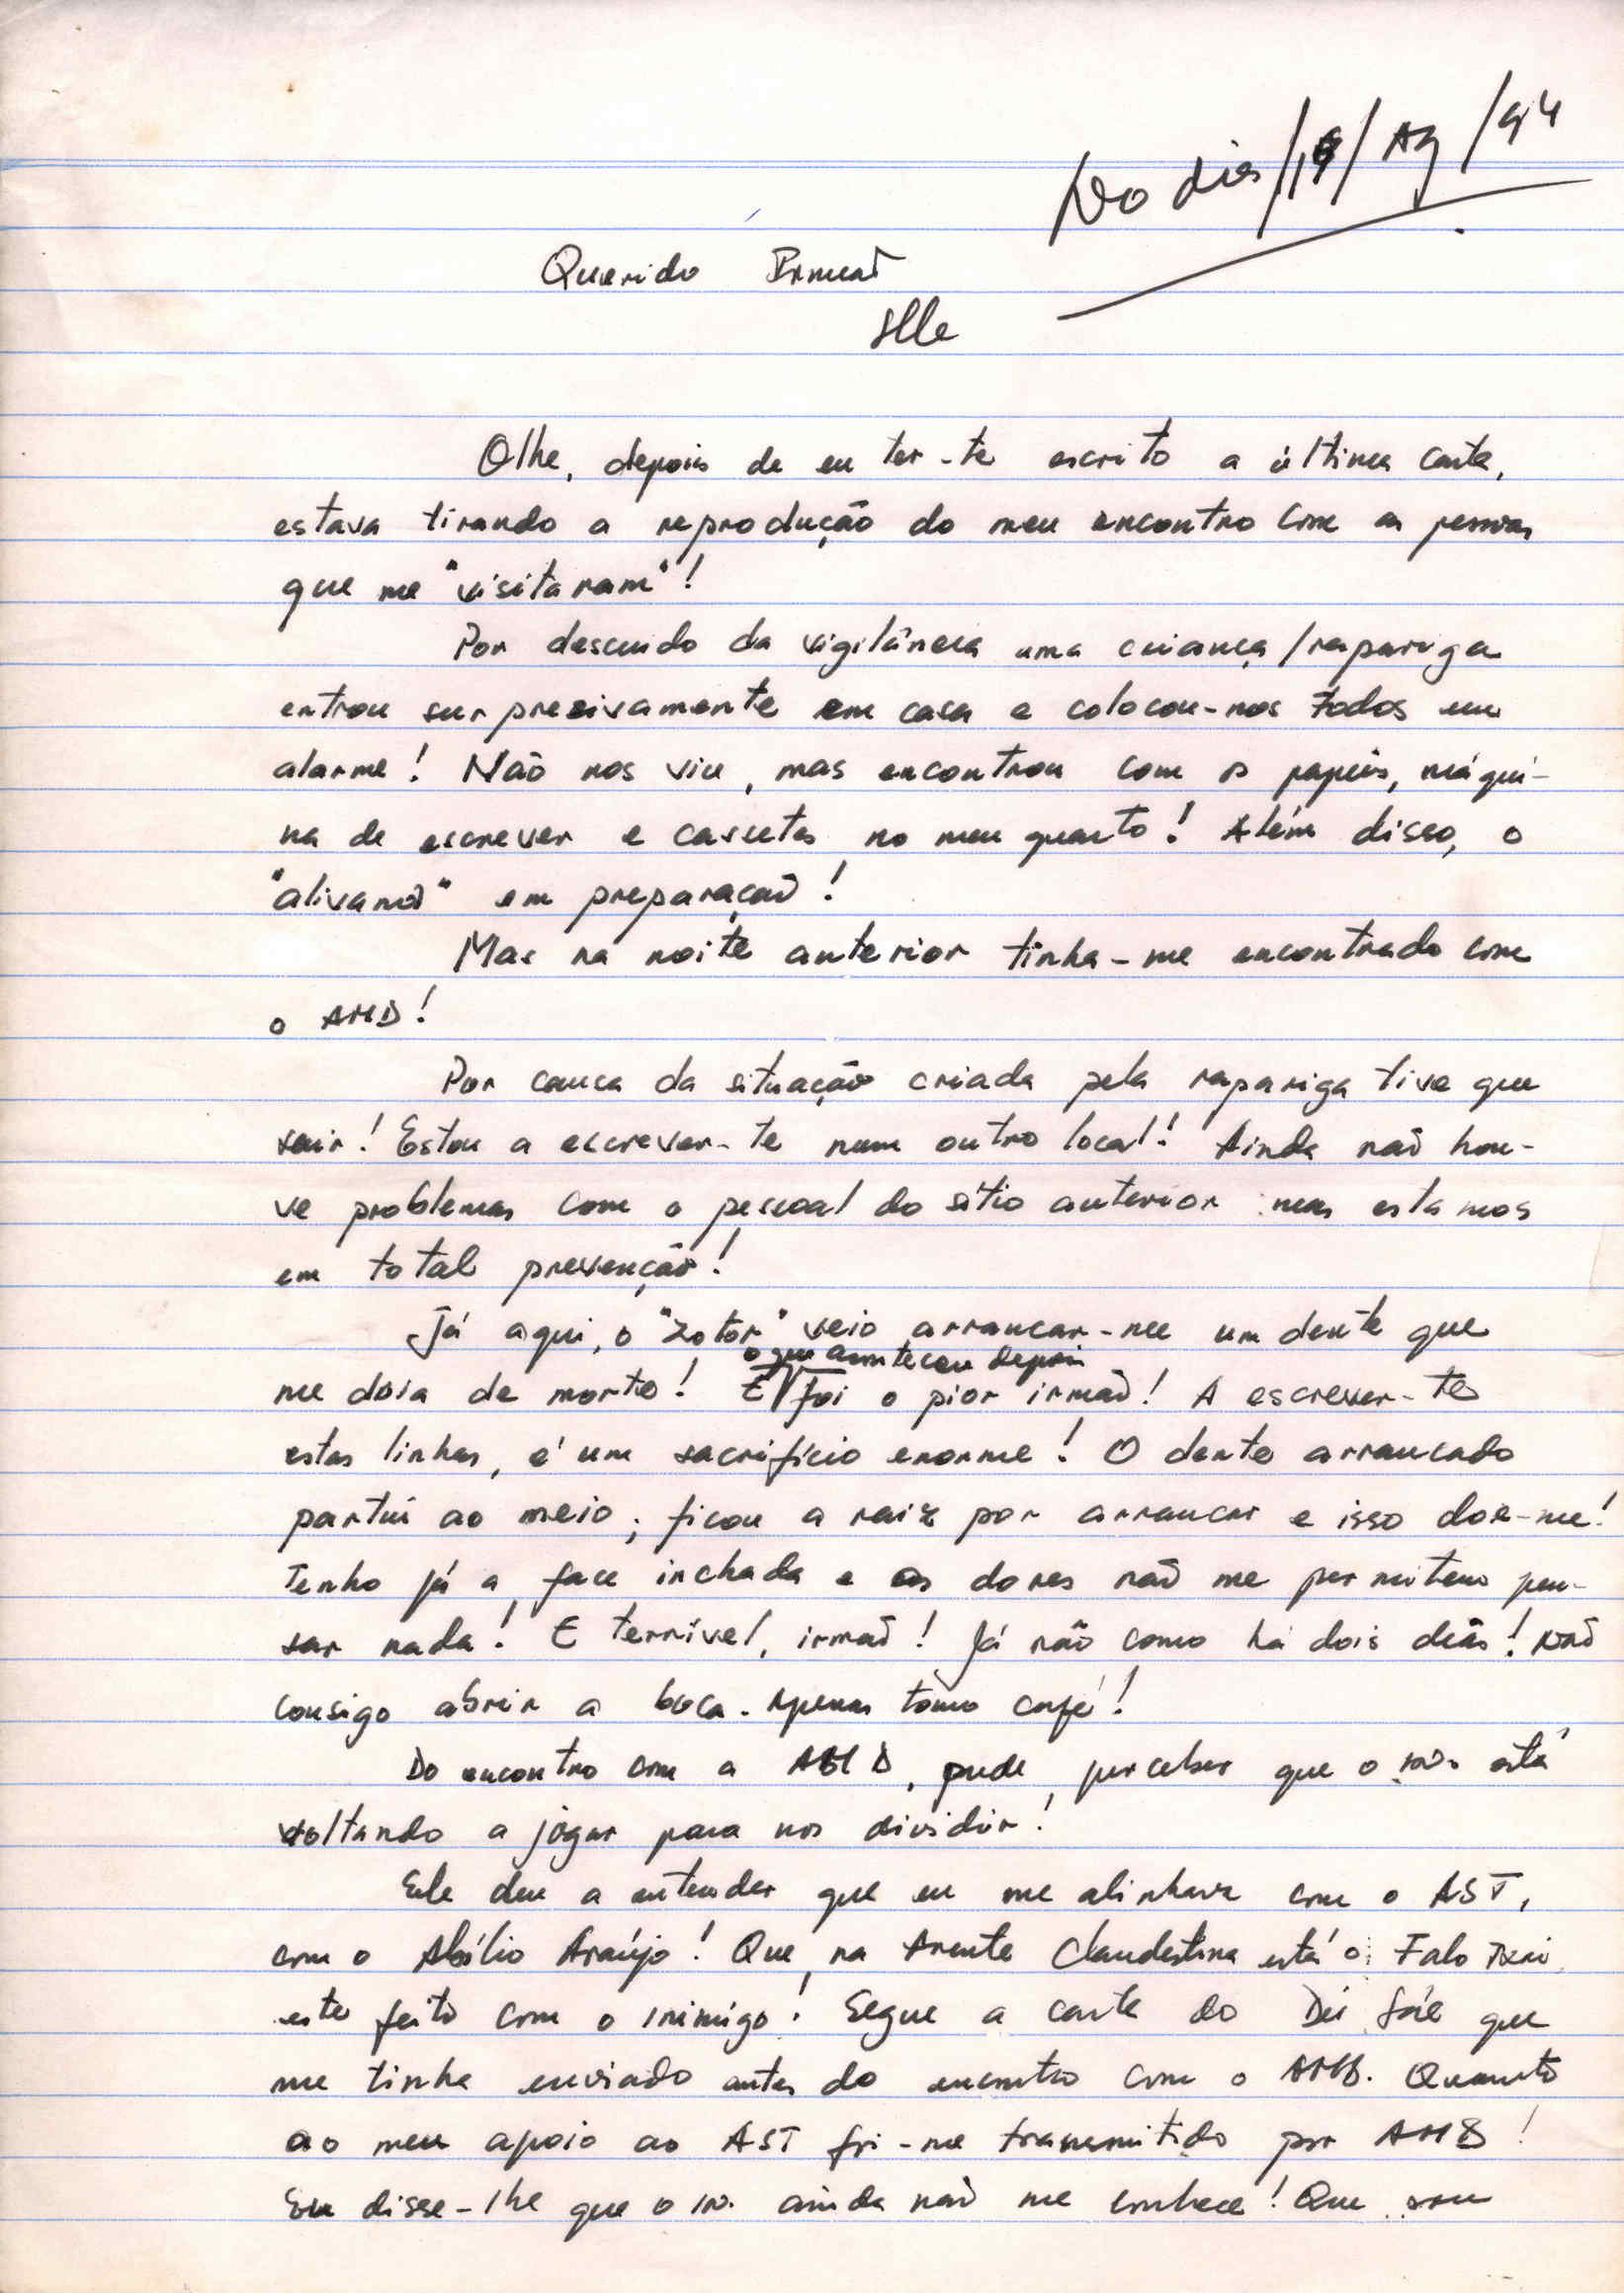 No dia /19/Ag/94
Querido Irmão
Olhe, depois de eu ter-te escrito a última carta,
estava tirando a reprodução do meu encontro com as pessoas
que me "visitaram"!
Por descuido da vigilância uma criança/rapariga
entrou surpresivamente em casa e colocou-nos todos em
alarme! Não nos viu, mas encontrou com os papéis, máqui-
na de escrever e cassetes no meu quarto! Além disso, o
em preparação!
Mas na noite anterior tinha-me encontrado com
o AMD!
Por causa da situação criada pela rapariga tive que
sair! Estou a escrever-te num outro local! Ainda não hou-
ve problemas com o pessoal do sítio anterior mas estamos
em total prevenção!
Já aqui, o "zotor" veio arrancar-me um dente que
o que aconteceu depois
me doia de morte! E foi o pior irmão! A escrever-te
estas linhas, é um sacrifício enorme! O dente arrancado
partiu ao meio; ficou a raiz por arrancar e isso doe-me!
Tenho já a face inchada e as dores não me permitem pen-
sar nada! É terrível, irmão! Já não como há dois dias! Não
consigo abrir a boca. Apenas tomo café!
Do encontro com a AMD, pude perceber que o in. está
voltando a jogar para nos dividir!
Ele deu a entender que eu me alinhava com o AST,
com o Abílio Araújo! Que, na Frente Clandestina está o Falo
este feito com o inimigo! Segue a carta do que
me tinha enviado antes do encontro com o AMB. Quanto
ao meu apoio ao AST foi-me transmitido por AMB!
Eu disse-lhe que o in. ainda não me conhece! Que sou